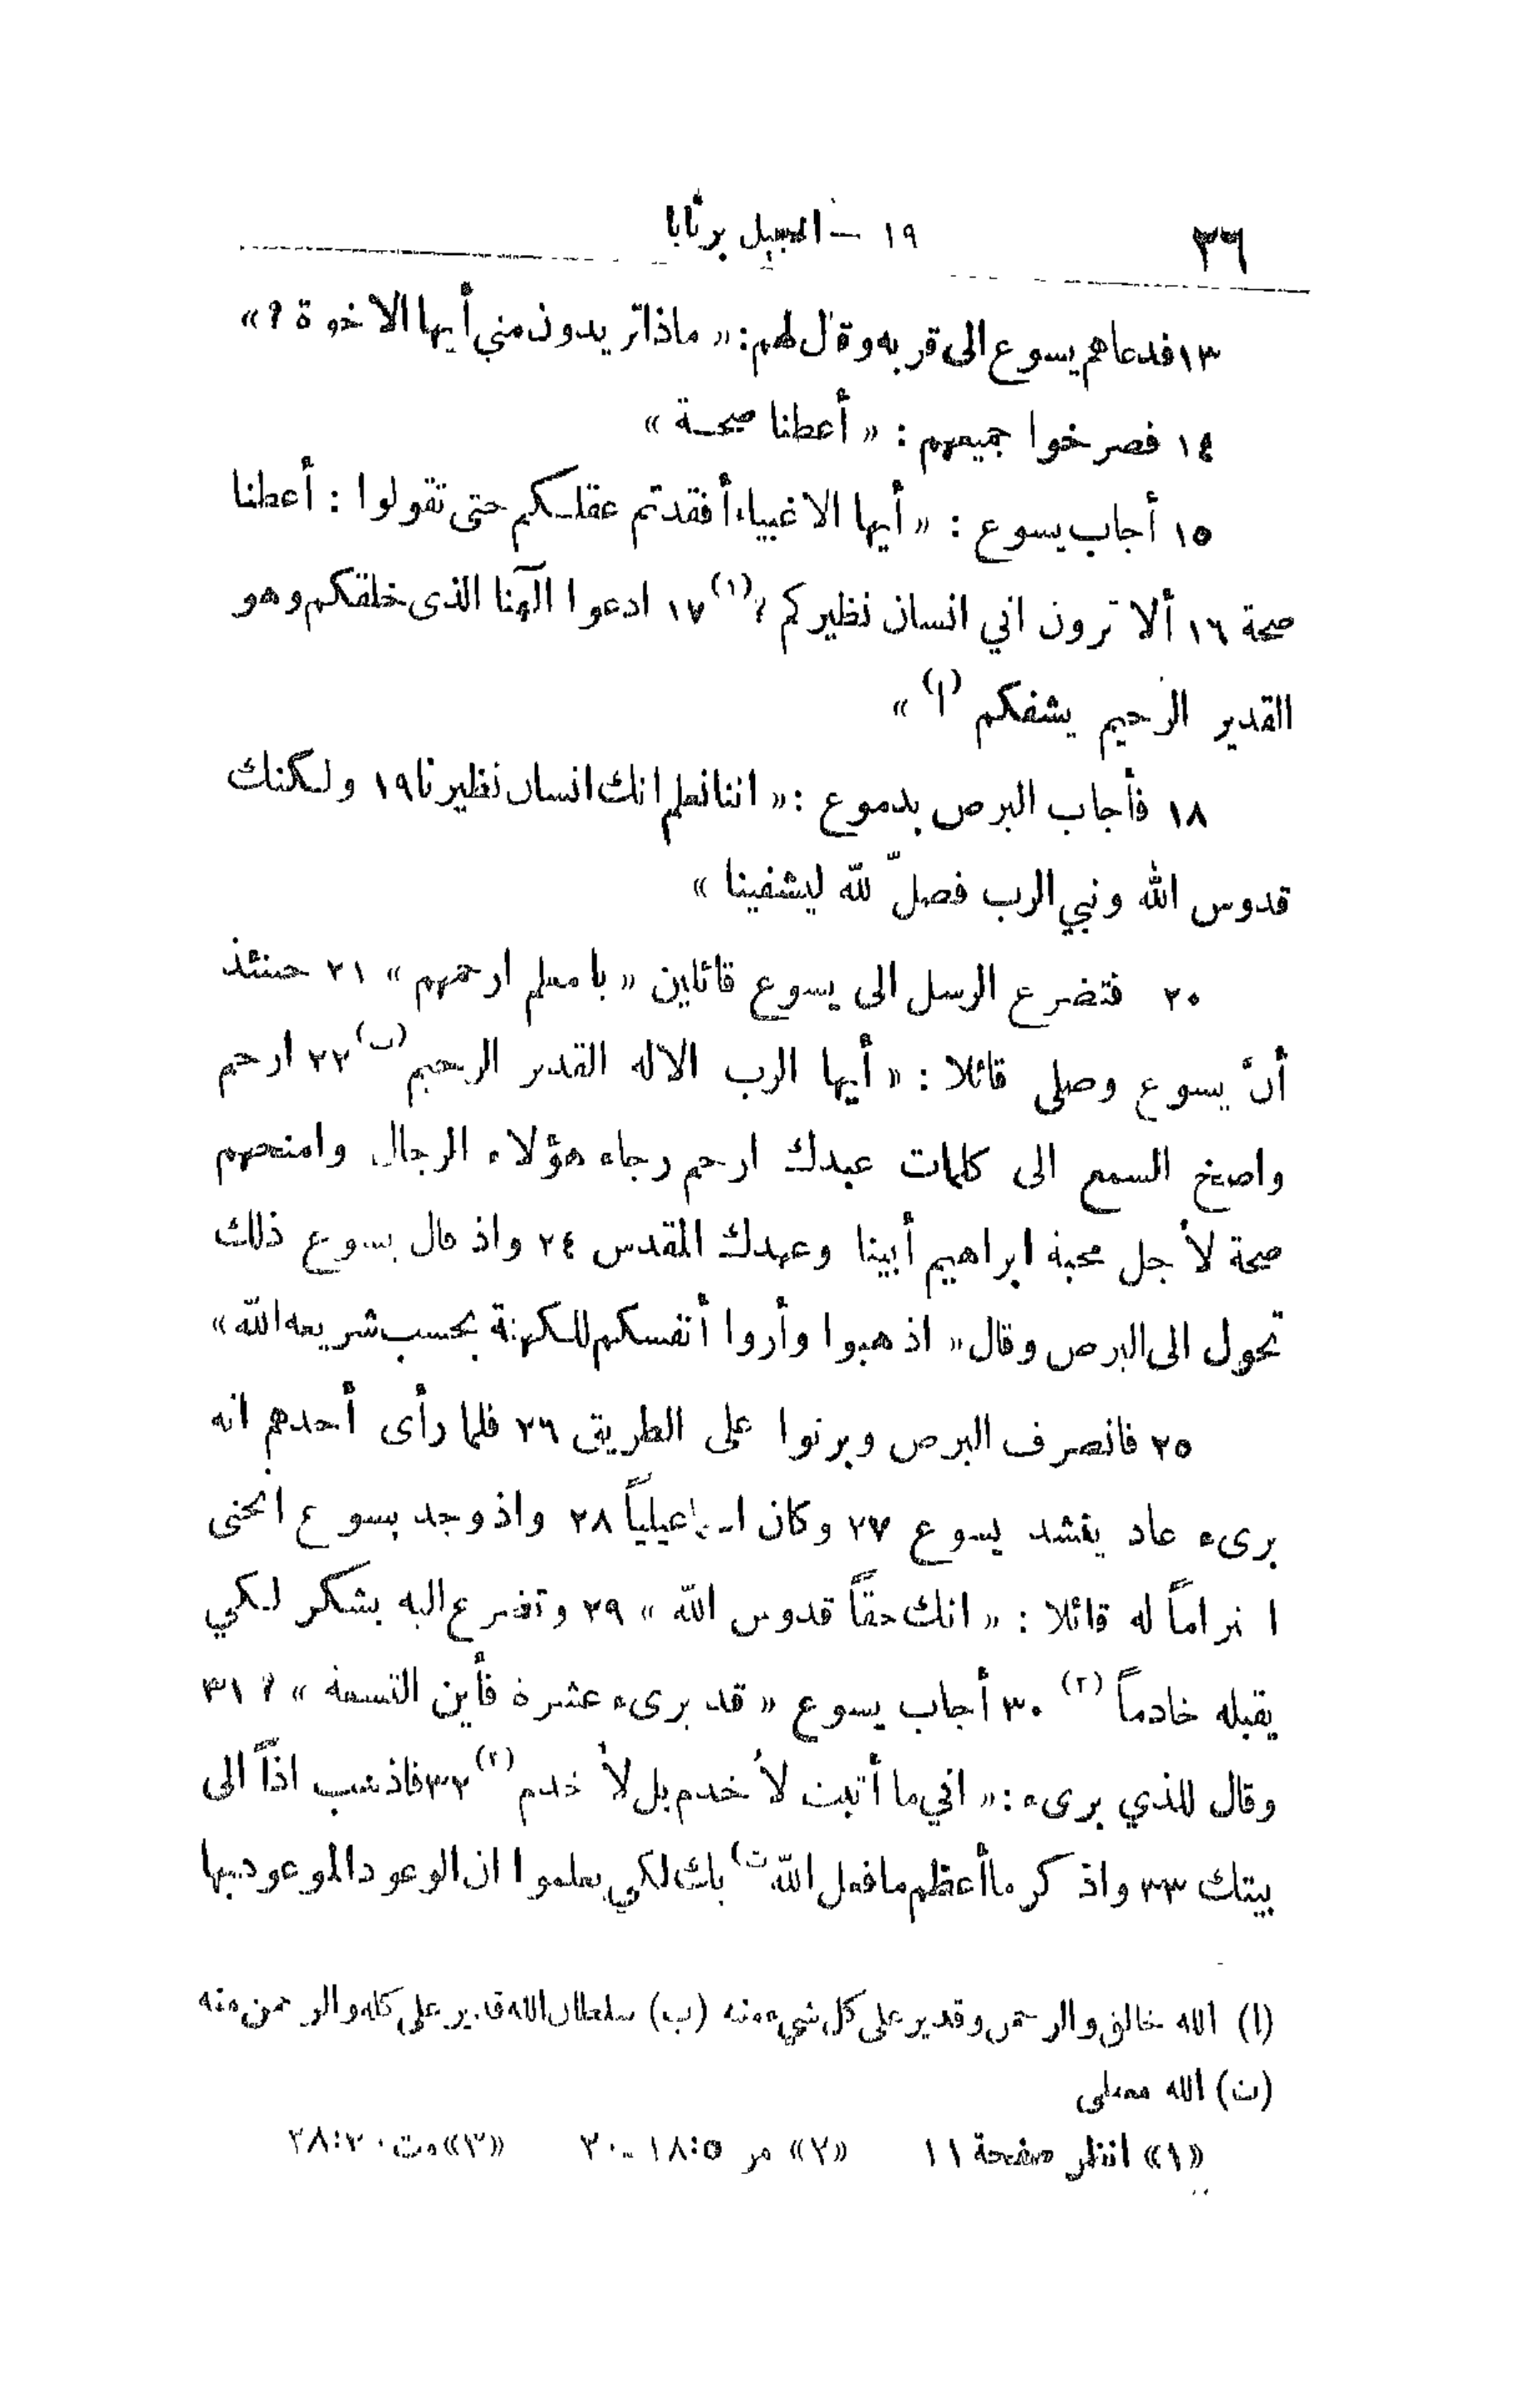 ٣٦ ١٩ — انجيل برنابا
١٣ فدعاهم يسوع الى قربه وقال لهم: « ماذا تريدون مني أيها الاخوة ؟ »
١٤ فصرخوا جميعهم : « أعطنا صحة »
١٥ أجاب يسوع : « أيها الاغبياء أفقدتم عقلكم حتى تقولوا : أعطنا
صحة ١٦ ألا ترون اني انسان نظيركم ؟ (١) ١٧ ادعوا الهنا الذى خلقكم وهو
القدير الرحيم يشفكم (ا) »
١٨ فأجاب البرص بدموع : « اننا نعلم انك انسان نظيرنا ١٩ ولكنك
قدوس الله ونبي الرب فصلّ لله ليشفينا »
٢٠ فتضرع الرسل الى يسوع قائلين « يا معلم ارحمهم » ٢١ حينئذ
أنّ يسوع وصلى قائلا : « أيها الرب الاله القدير الرحيم (ب) ٢٢ ارحم
واصغ السمع الى كلمات عبدك ارحم رجاء هؤلاء الرجال وامنحهم
صحة لأجل محبة ابراهيم أبينا وعهدك المقدس ٢٤ واذ قال يسوع ذلك
تحول الى البرص وقال « اذهبوا وأروا أنفسكم للكهنة بحسب شريعة الله »
٢٥ فانصرف البرص وبرئوا على الطريق ٢٦ فلما رأى أحدهم انه
برىء عاد ينشد يسوع ٢٧ وكان اسماعيلياً ٢٨ واذ وجد يسوع انحنى
احتراماً له قائلا : « انك حقاً قدوس الله » ٢٩ وتضرع اليه بشكر لكي
يقبله خادماً (٢) ٣٠ أجاب يسوع « قد برىء عشرة فأين التسعة » ؟ ٣١
وقال للذي برىء : « اني ما أتيت لأخدم بل لأخدم (٣) ٣٢ فاذهب اذاً الى
بيتك ٣٣ واذكر ما أعظم ما فعل الله (ت) بك لكي يعلموا ان الوعود الموعود بها
(ا) الله خالق والرحمن وقدير على كل شيء منه (ب) سلطان الله قدير على كله والرحمن منه
(ت) الله معطى
«١» انظر صفحة ١١ «٢» مر ٥:١٨-٢٠ «٣» مت ٢٠:٢٨